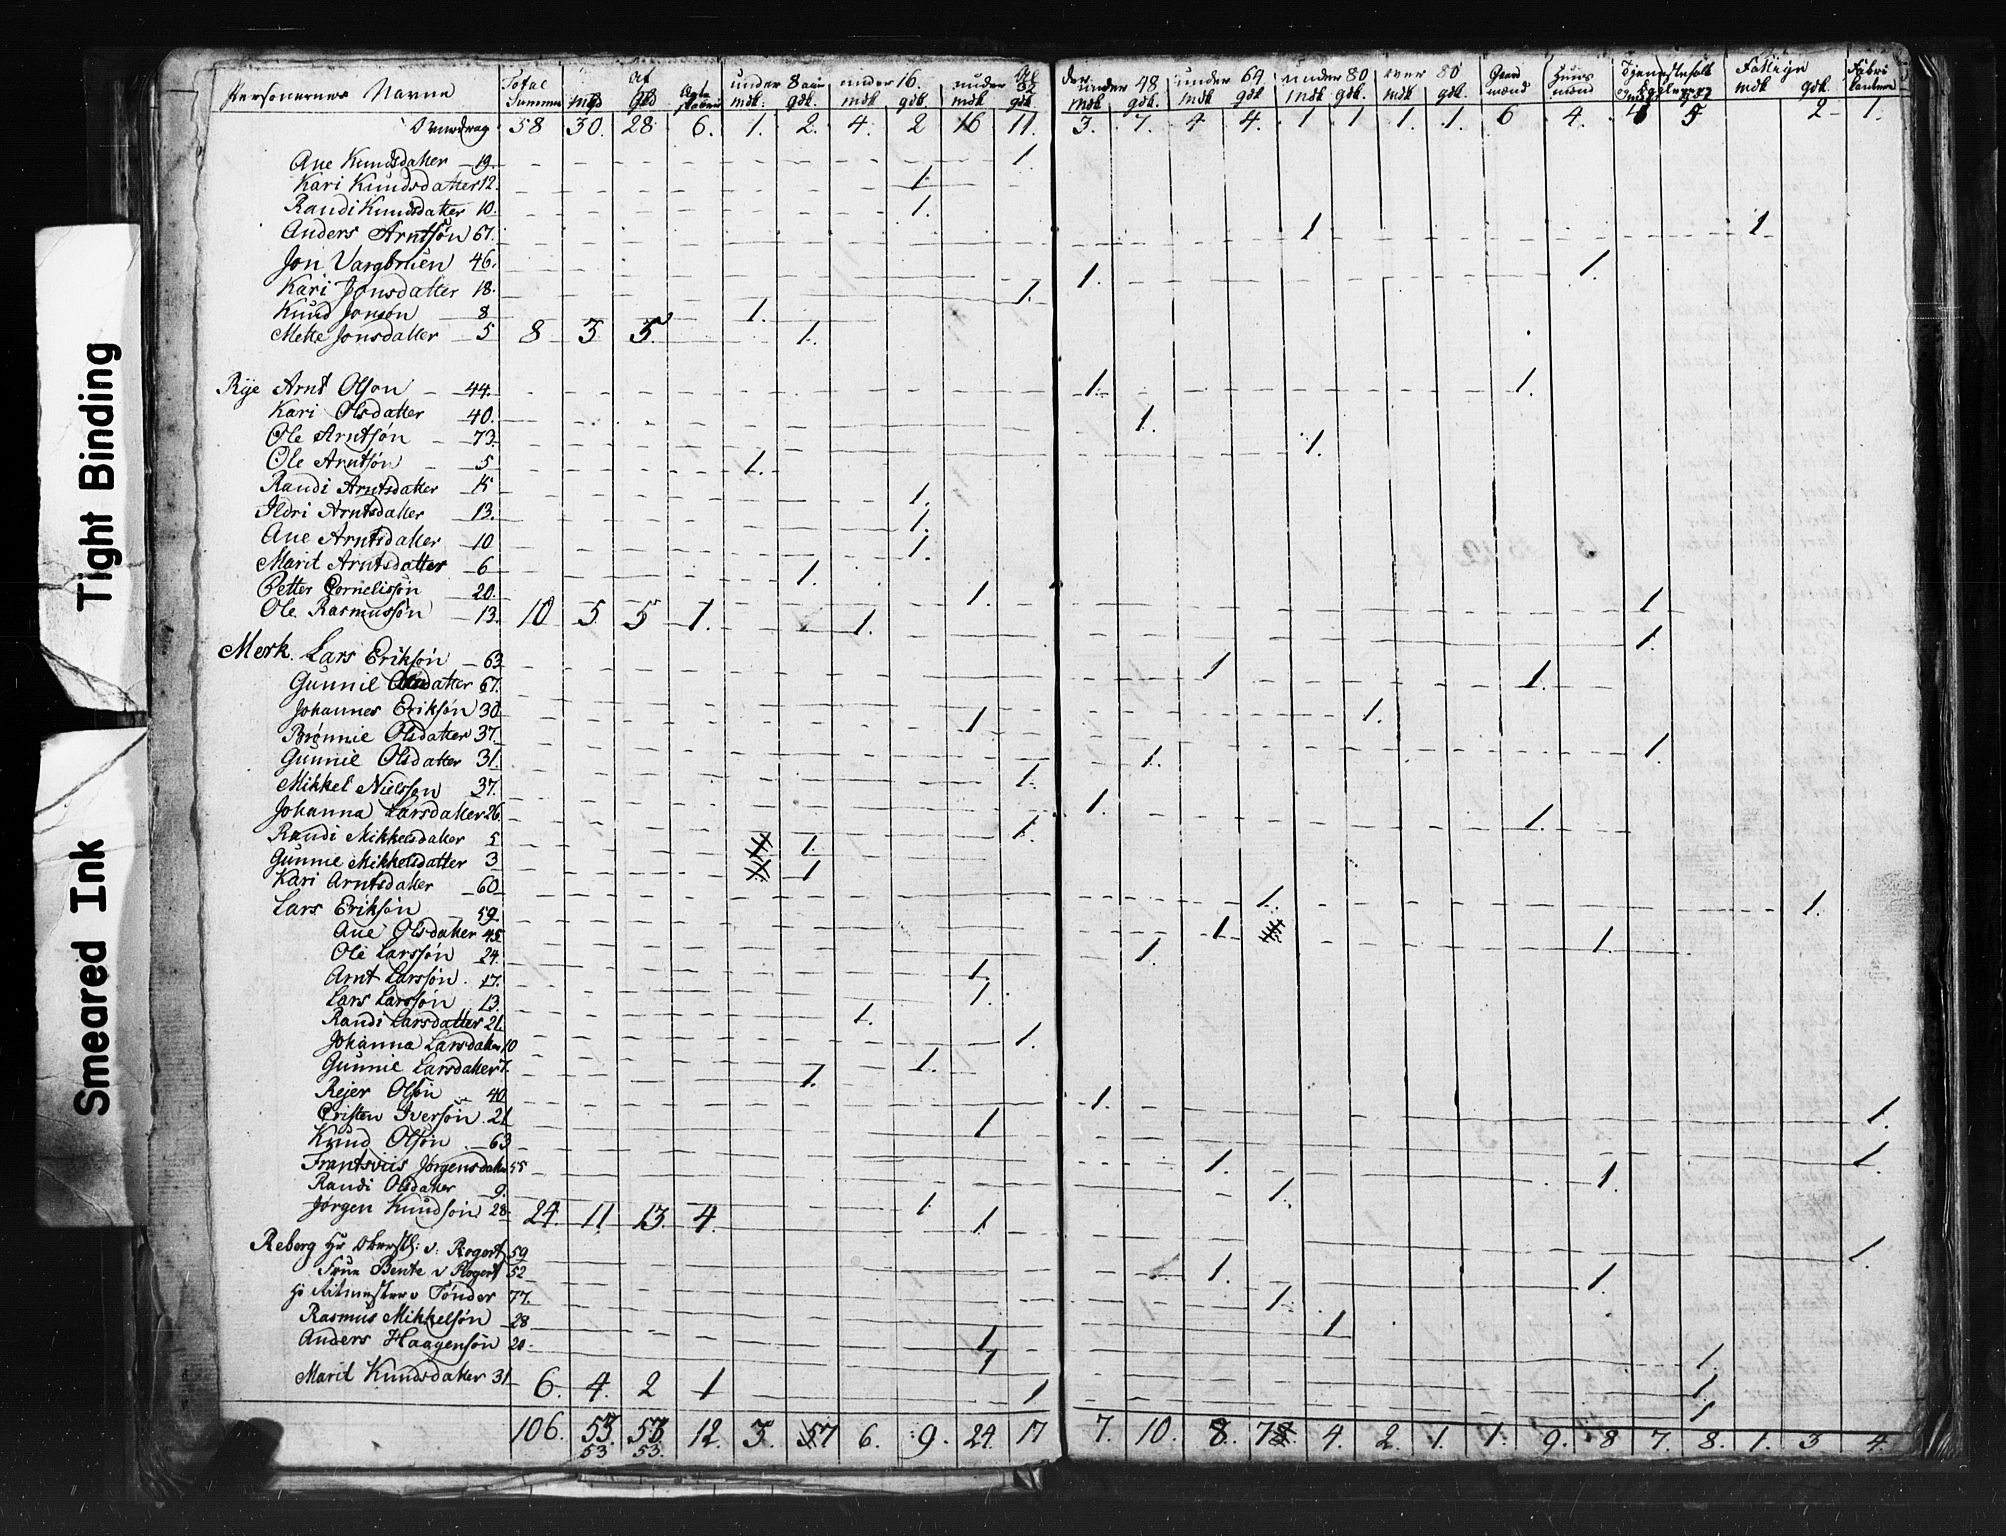 Personernes Navne Total Summa Af Mkd Qkd Ægte skabes under 8 aar mdk: qdk. under 16. mdk qdk. under 32 mdk qdk der under 48 mdk qdk. under 64 mdk qdk under 80 mdk qdk. over 80 mdk qdk. Gaard mænd Huus mænd Tjenestefolk og Fattige mdk qdk.
58 30. 28 6. 1. 2. 4. 2 16 11. 3. 7. 4 4. 1 1 1. 1. 6 4. 4 5 2 1.
Ane Knudsdatter 19. 1
Kari Knudsdatter 12. 1.
Randi Knudsdatter 10. 1.
Anders Arntsøn 67. 1 1
Jon Vargbruen 46. 1. 1.
Kari Jonsdatter 18. 1.
Knud Jonsøn 8 1.
Mette Jonsdatter 5 8 3 5. 1.
Rÿe Arnt Olson 44. 1 1.
Kari Olsdatter 40. 1.
Ole Arntsøn 73. 1.
Ole Arntsøn 5. 1.
Randi Arntsdatter 15 1.
Ildri Arntsdatter 13. 1.
Ane Arntsdatter 10 1.
Marit Arntsdatter 6 1.
Petter Cornelissøn 20. 1. 1
Ole Rasmussøn 13. 10 5 5 1. 1. 1.
Merk. Lars Eriksøn 63 1 1.
Gunnil Olsdatter 67. 1.
Johannes Eriksøn 30 1 1.
Brønnie Olsdatter 37. 1.
Gunnil Olsdatter 31. 1.
Mikkel Nielsøn 37. 1. 1.
Johanna Larsdatter 26. 1.
Randi Mikkelsdatter 5 1.
Gunnie Mikkelsdatter 3 1
Kari Arntsdatter 60 1. 1.
Lars Eriksøn 59 1 1.
Ane Olsdatter 45 1.
Ole Larssøn 24. 1.
Arnt Larssøn 17. 1.
Lars Larssøn 13. 1.
Randi Larsdatter 21 1.
Johanna Larsdatter 10 1.
Gunnie Larsdatter 7. 1.
Rejer Olsøn 40 1. 1.
Cristen Iversøn 21 1 1.
Knud Olsøn 63 1. 1.
Frantsviis Jørgensdatter 55 1.
Randi Olsdatter 9. 1
Jørgen Knudsøn 28 24. 11 13. 4. 1 1.
Reberg Hr Oberstl: v: Rogert 59 1. 1.
Frue Bente v Rogert 52 1
Hr Ritmester v Tønder 77. 1
Rasmus Mikkelsøn 28 1 1.
Anders Haagensøn 20 1 1.
Marit Knudsdatter 31 6. 4. 2 1 1 1
106. 53. 53 12. 3. 7 6. 9. 24. 17 7. 10. 8. 7 4. 2. 1. 1. 9. 8 7. 8. 1. 3 4.
53 53.
Tight Binding
Smeared Ink